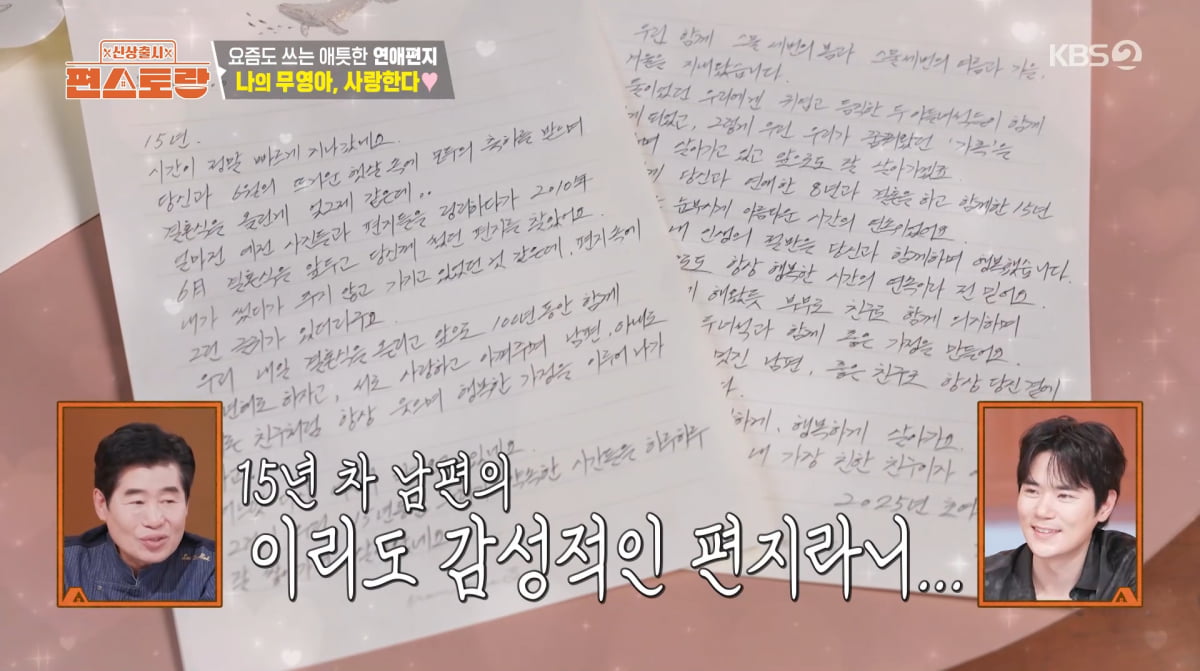 신상출시
편스토랑
요즘도 쓰는 애틋한 연애편지
나의 무영아, 사랑한다♥
KBS2
15년.
시간이 정말 빠르게 지나갔네요.
당신과 6월의 뜨거운 햇살 속에 모두의 축하를 받으며
결혼식을 올린게 엊그제 같은데..
얼마전 예전 사진들과 편지들을 정리하다가 2010年
6月 결혼식을 앞두고 당신께 썼던 편지를 찾았어요.
내가 썼다가 주지 않고 가지고 있었던 것 같은데, 편지 속에
그런 글귀가 있더라구요.
우리 내일 결혼식을 올리고 앞으로 100년 동안 함께
하자고, 서로 사랑하고 아껴주며 남편, 아내로
친구처럼 항상 웃으며 행복한 가정을 이루어 나가
시간들을 하루하루
우린 함께 스물 세번의 봄과 스물세번의 여름과 가을,
겨울을 지내왔습니다.
둘이었던 우리에겐 귀엽고 듬직한 두 아들녀석들이 함께
게 되었고, 그렇게 우린 우리가 꿈꿔왔던 '가족'을
며 살아가고 있고 앞으로도 잘 살아가겠죠.
게 당신과 연애한 8년과 결혼을 하고 함께한 15년
눈부시게 아름다운 시간의 연속이었어요.
내 인생의 절반을 당신과 함께하며 행복했습니다.
도 항상 행복한 시간의 연속이라 전 믿어요.
해왔듯 부부로 친구로 함께 의지하며
두녀석과 함께 좋은 가정을 만들어요.
멋진 남편, 좋은 친구로 항상 당신 곁에
다.
하게, 행복하게 살아가요.
내 가장 친한 친구이자
2025년 초여
15년 차 남편의
이리도 감성적인 편지라니...